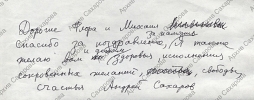 Дорогие Флора и Михаил
спасибо за поздравление, я также
желаю вам здоровья исполнения
сокровенных желаний, свободы,
счастья Андрей Сахаров